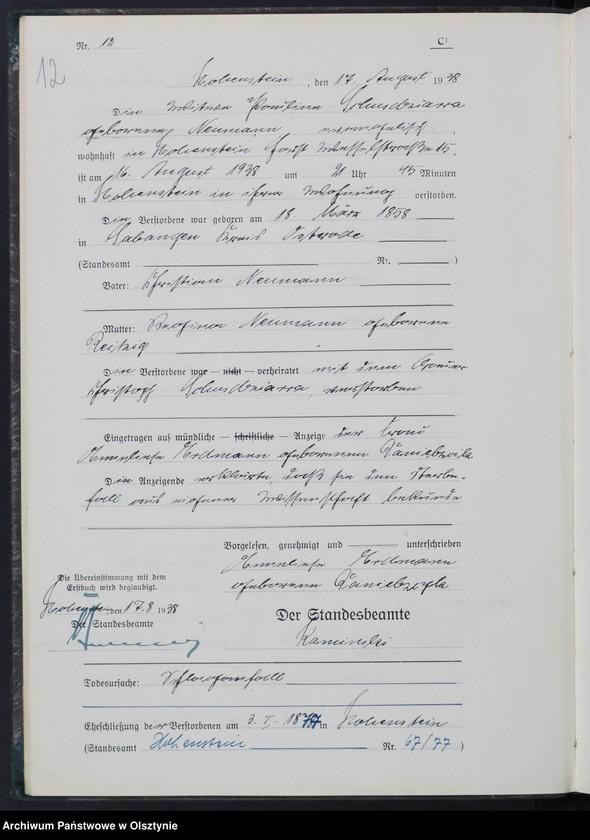 Nr. 12 C¹
12
Hohenstein, den 17. August 1938
Die Witwe Pauline
geborene Neumann
wohnhaft in Hohenstein 15.
ist am 16. August 1938 um 21 Uhr 45 Minuten
in Hohenstein in ihrer Wohnung verstorben.
Die Verstorbene war geboren am 18. März 1858
in Labangen Kreis Osterode
(Standesamt Nr. )
Vater: Christian Neumann
Mutter: Neumann geborene
Reitzig
Die Verstorbene war — nicht — verheiratet mit dem
Christoph verstorben
Eingetragen auf mündliche — schriftliche — Anzeige der Frau
Anneliese Erdmann geborenen
Die Anzeigende erklärte, daß sie den Sterbe-
fall aus eigener Wissenschaft bekunde
Vorgelesen, genehmigt und unterschrieben
Anneliese Erdmann
geborene
Die Übereinstimmung mit dem
Erstbuch wird beglaubigt.
den 17.8 1938
Der Standesbeamte
Der Standesbeamte
Kaminski
Todesursache: Schlaganfall
Eheschließung der Verstorbenen am 3. 1877 in Hohenstein
(Standesamt Hohenstein Nr. 67/77 )
Archiwum Państwowe w Olsztynie